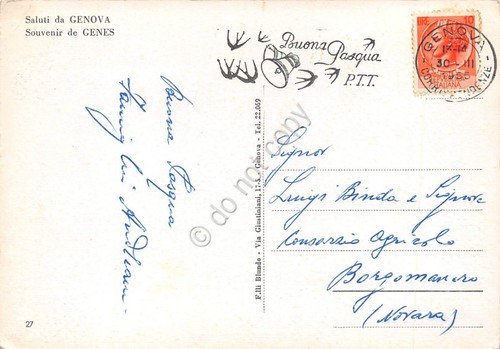 Saluti da GENOVA
Souvenir de GENES
Buona
Pasqua
P.T.T.
LIRE 10
GENOVA
30-III
CORRISPONDENZE
Buona Pasqua
Famiglia
F.lli Biundo - Via Giustiniani, 17-5 - Genova - Tel. 22.069
do not copy
Signor
Luigi Binda e Signora
Consorzio Agricolo
Borgomanero
(Novara)
27